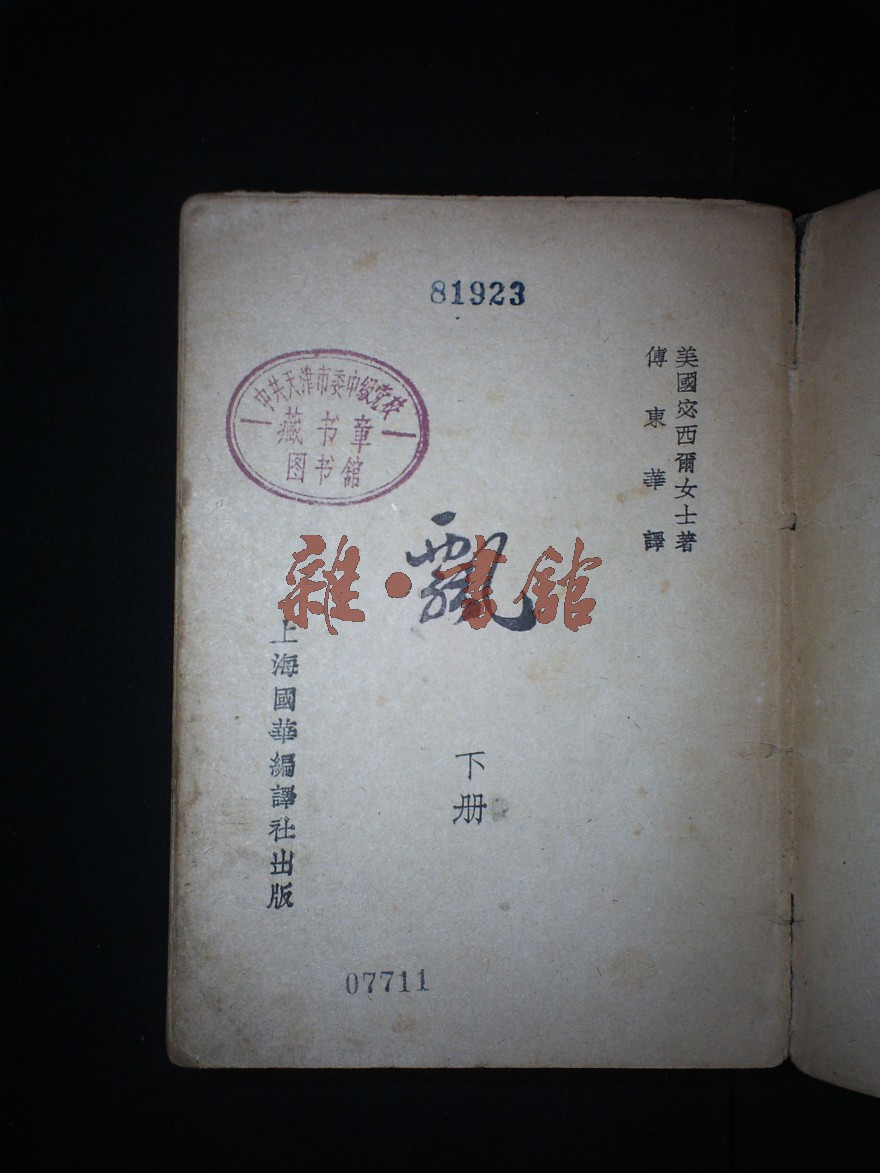 81923
美國宓西爾女士著
傅東華譯
中共天津市委中级党校
藏书章
图书馆
飄
雜·書館
下册
上海國華編譯社出版
07711